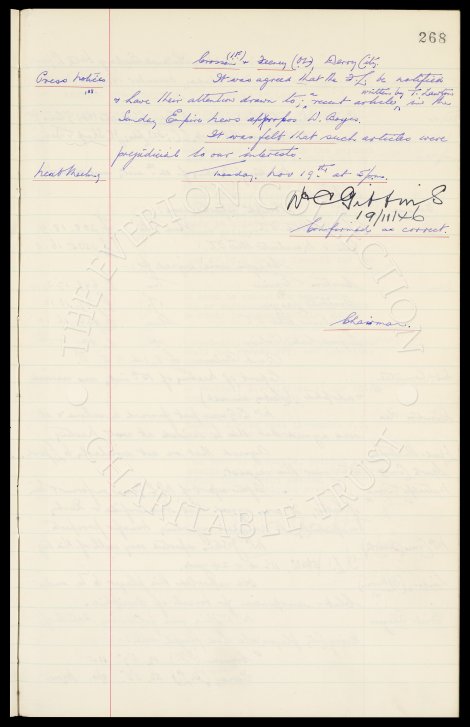 268
Crossan (IR) & Feeney (OL) Derry City
Press notices It was agreed that the F.L. be notified
written by T. Lawton
& have their attention drawn to; a recent article in the
Sunday Empire news apropos W. Boyes.
It was felt that such articles were
prejudicial to our interests.
Next Meeting Tuesday, Nov 19th at 5 pm.
W C Gibbins
19/11/46
Confirmed as correct.
Chairman.
THE EVERTON COLLECTION
CHARITABLE TRUST